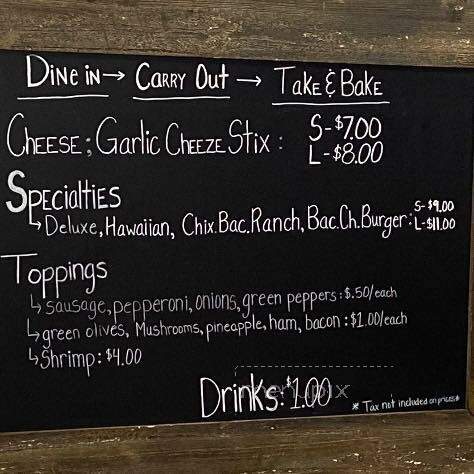 Dine in → Carry Out → Take & Bake
Cheese; Garlic Cheeze Stix : S-$7.00
L-$8.00
Specialties
↳ Deluxe, Hawaiian, Chix.Bac.Ranch, Bac.Ch.Burger: S-$9.00
L-$11.00
Toppings
↳ sausage, pepperoni, onions, green peppers: $.50/each
↳ green olives, Mushrooms, pineapple, ham, bacon : $1.00/each
↳ Shrimp: $4.00
Drinks: $1.00
* Tax not included on prices*